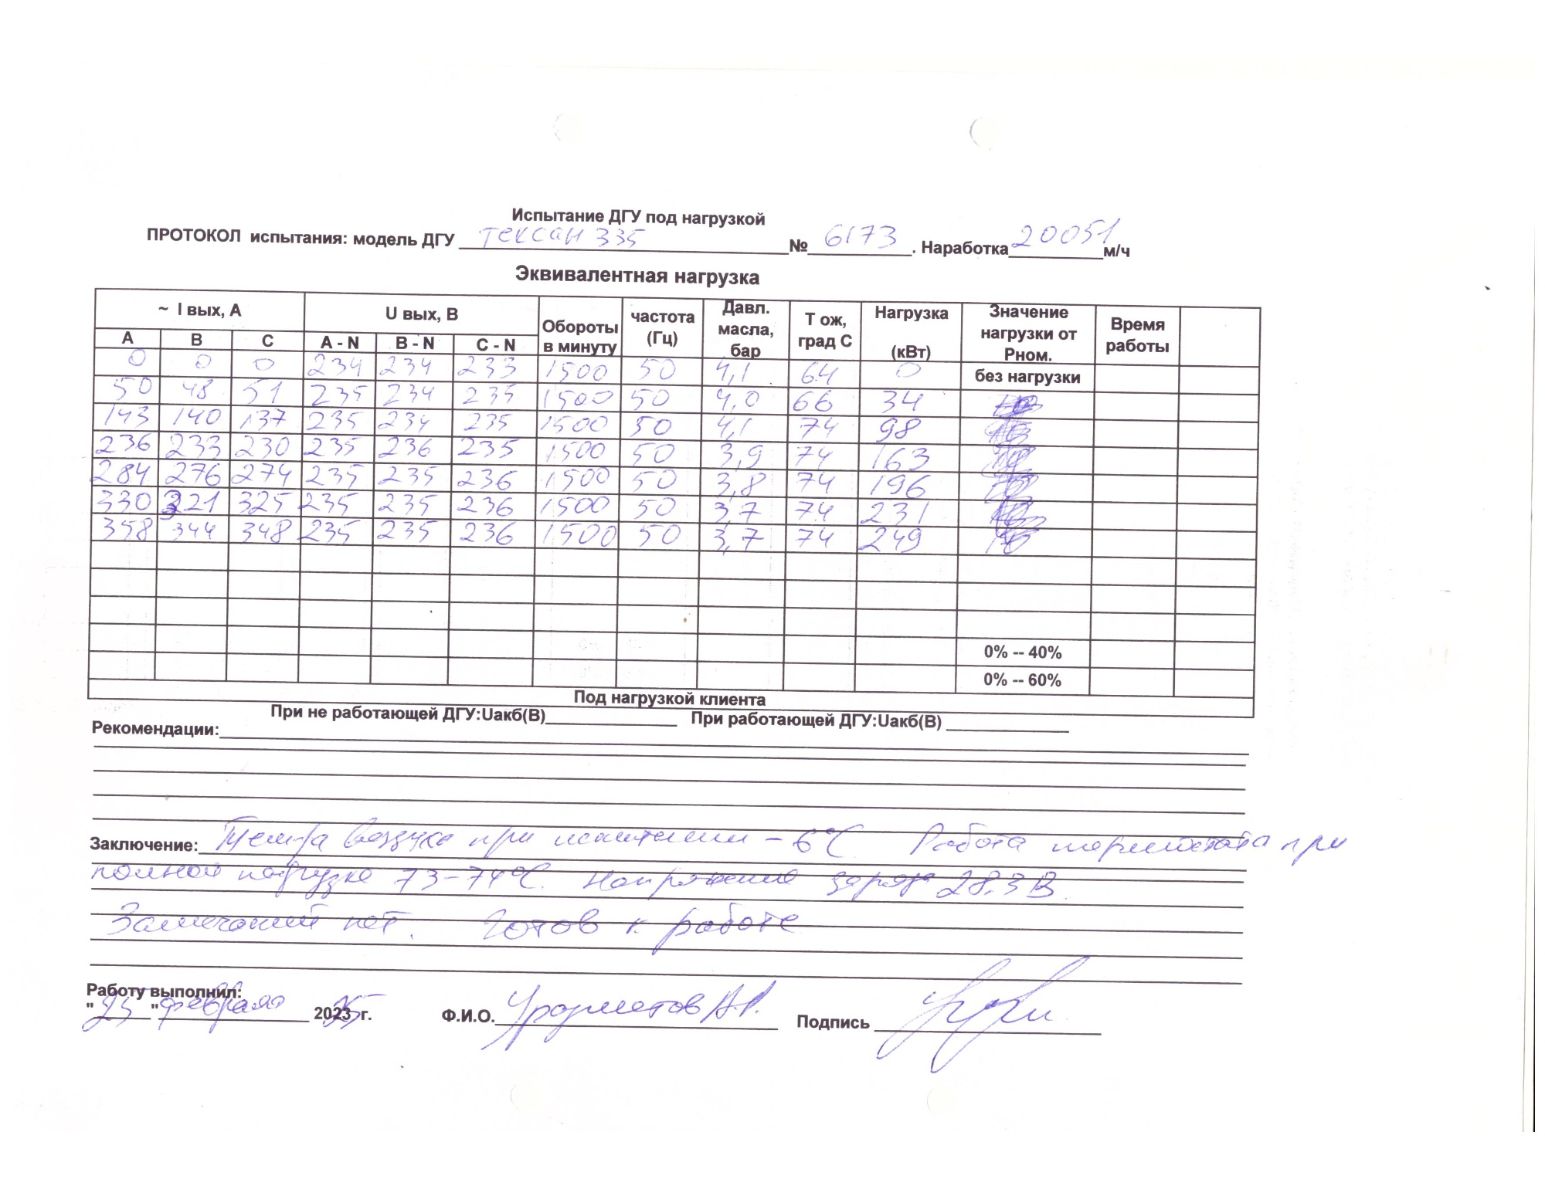 Испытание ДГУ под нагрузкой
ПРОТОКОЛ испытания: модель ДГУ Тексан 335 № 6173. Наработка 20051 м/ч
Эквивалентная нагрузка
~ I вых, А U вых, В Обороты в минуту частота (Гц) Давл. масла, бар Т ож, град С Нагрузка (кВт) Значение нагрузки от Рном. Время работы
А В С А - N В - N С - N
0 0 0 234 234 233 1500 50 4,1 64 0 без нагрузки
50 48 51 235 234 235 1500 50 4,0 66 34
143 140 137 235 234 235 1500 50 4,1 74 98
236 233 230 235 236 235 1500 50 3,9 74 163
284 276 274 235 235 236 1500 50 3,8 74 196
330 321 325 235 235 236 1500 50 3,7 74 231
358 344 348 235 235 236 1500 50 3,7 74 249
0% -- 40%
0% -- 60%
Под нагрузкой клиента
При не работающей ДГУ:Uакб(В) При работающей ДГУ:Uакб(В)
Рекомендации:
Заключение: Темп-ра воздуха при испытании - 6°С Работа термостата при
полной нагрузке 73-74°С. Напряжение заряда 28.3 В
Замечаний нет. Готов к работе
Работу выполнил:
"25" февраля 2025 г. Ф.И.О. Подпись